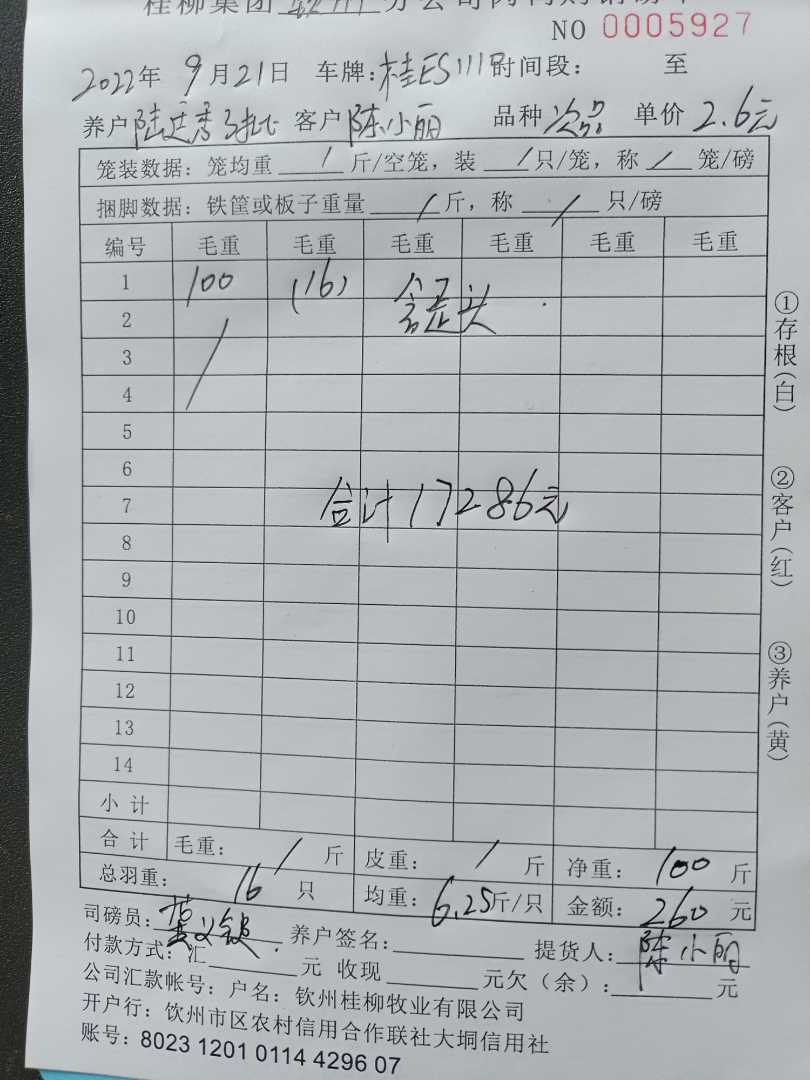 NO 0005927
2022年 9月21日 车牌:桂ES111 时间段: 至
养户 陆廷秀 客户 陈小丽 品种 次品 单价 2.6元
笼装数据: 笼均重 / 斤/空笼, 装 / 只/笼, 称 / 笼/磅
捆脚数据: 铁筐或板子重量 / 斤, 称 / 只/磅
编号 毛重 毛重 毛重 毛重 毛重 毛重
1 100 (16)
2 /
3
4
5
6
7
合计17286元
8
9
10
11
12
13
14
小计
合计 毛重: / 斤 皮重: / 斤 净重: 100 斤
总羽重: 16 只 均重: 6.25斤/只 金额: 260 元
司磅员: 养户签名: 提货人: 陈小丽
付款方式: 汇 元 收现 元欠(余): 元
公司汇款帐号: 户名: 钦州桂柳牧业有限公司
开户行: 钦州市区农村信用合作联社大垌信用社
账号: 8023 1201 0114 4296 07
①存根(白)
②客户(红)
③养户(黄)